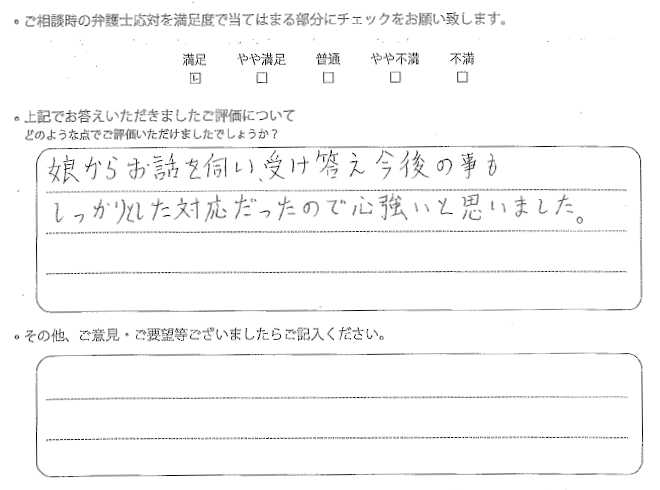 ・ご相談時の弁護士応対を満足度で当てはまる部分にチェックをお願い致します。
満足 やや満足 普通 やや不満 不満
・上記でお答えいただきましたご評価について
どのような点でご評価いただけましたでしょうか？
娘からお話を伺い、受け答え今後の事も
しっかりとした対応だったので心強いと思いました。
・その他、ご意見・ご要望等ございましたらご記入ください。